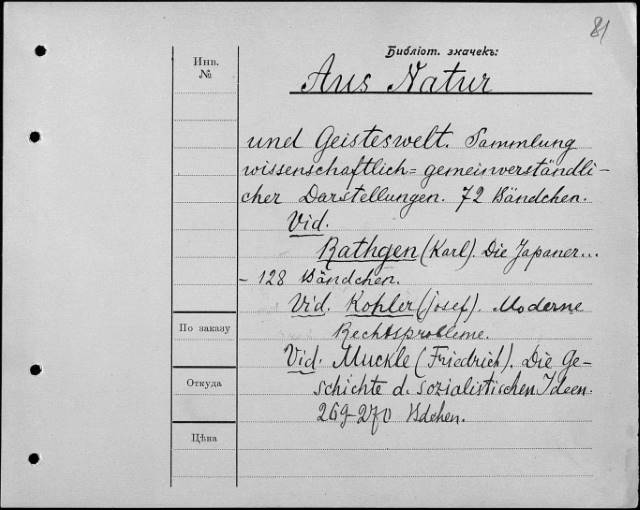 81
Библіот. значекъ:
Инв.
№
Aus Natur
und Geisteswelt. Sammlung
wissenschaftlich= gemeinverständli-
cher Darstellungen. 72 Bändchen.
Vid.
Rathgen (Karl). Die Japaner...
- 128 Bändchen.
Vid. Kohler (Josef). Moderne
Rechtsprobleme.
По заказу
Vid. Muckle (Friedrich). Die Ge-
schichte d. sozialistischen Ideen.
Откуда
269-270 Bdchen.
Цѣна